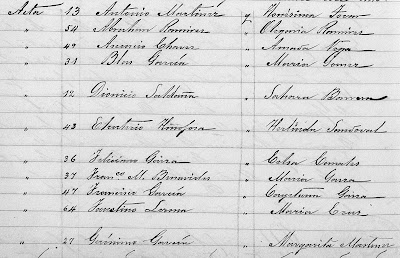 Acta 13 Antonio Martinez y Herisima Tovar
" 54 Abraham Ramirez " Olegaria Ramirez
" 49 Arcenio Chavez " Amada Vega
" 31 Blas Garcia " Maria Gomez
" 12 Dionicio Saldaña " Sahara Barrera
" 43 Eleuterio Hinojosa " Herlinda Sandoval
" 36 Feliciano Garza " Elsa Canales
" 37 Franco M. Benavides " Maria Garza
" 47 Francisco Garcia " Garza
" 64 Faustino Lerma " Maria Cruz
" 27 Gerónimo Garcia " Margarita Martinez